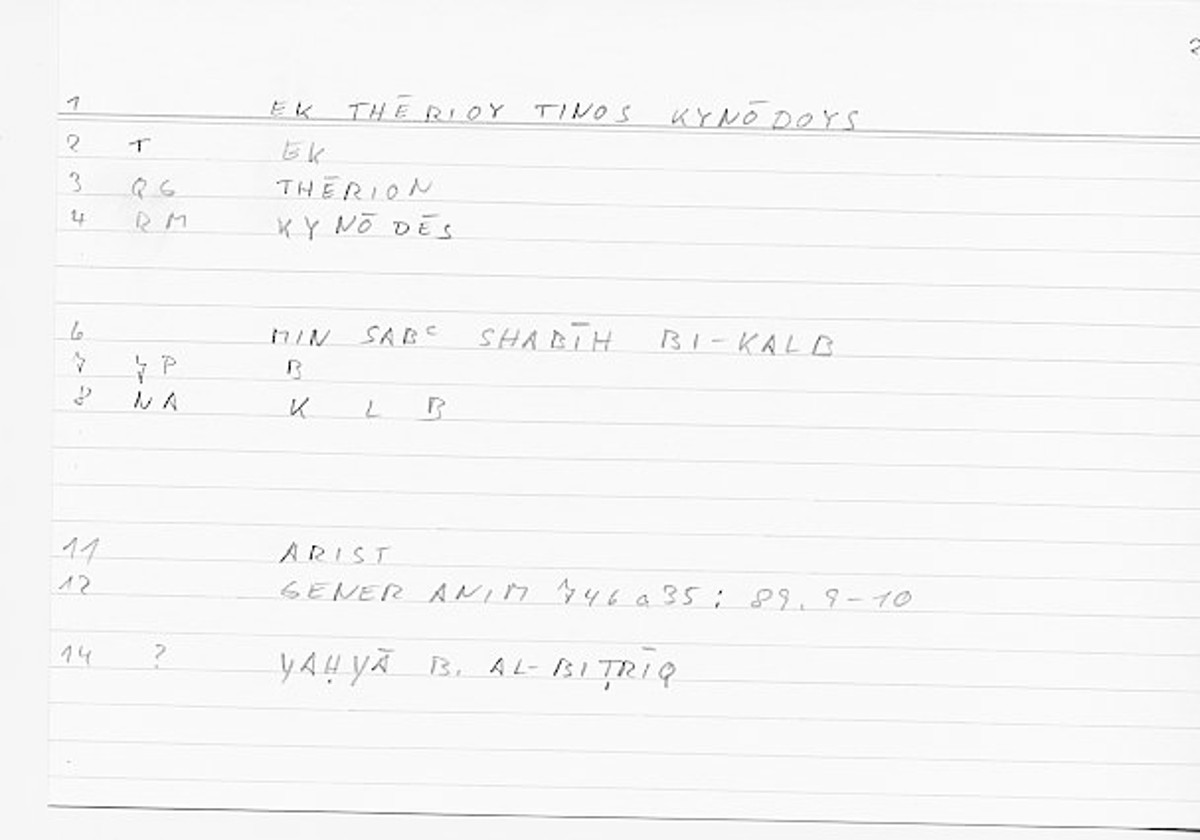 2
1 EK THĒRIOY TINOS KYNŌDOYS
2 T EK
3 QG THĒRION
4 RM KYNŌDĒS
6 MIN SABᶜ SHABĪH BI-KALB
7 7P B
8 NA K L B
11 ARIST
12 GENER ANIM 746a35; 89.9-10
14 ? YAḤYĀ B. AL-BIṬRĪQ